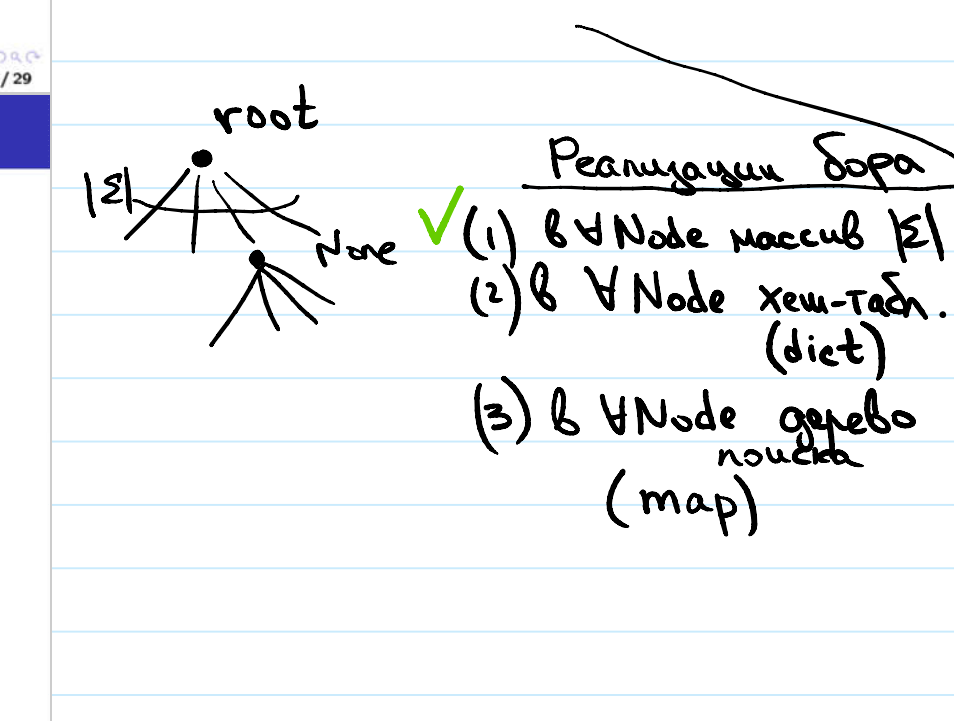 / 29
root
|Σ|
None
Реализации бора
(1) в ∀ Node массив |Σ|
(2) в ∀ Node хеш-табл.
(dict)
(3) в ∀ Node дерево
поиска
(map)